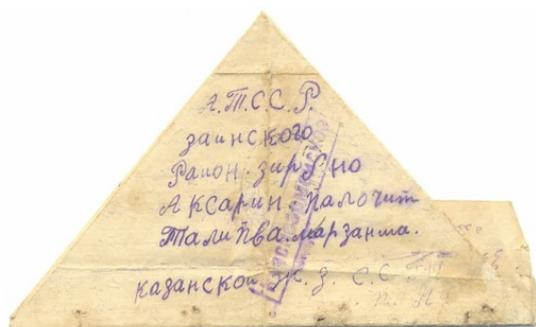 А.Т.С.С.Р.
заинского
Раион. зирУно
Аксарин. палочит
Талипва. марзанма.
казанской ж. д. С. С.